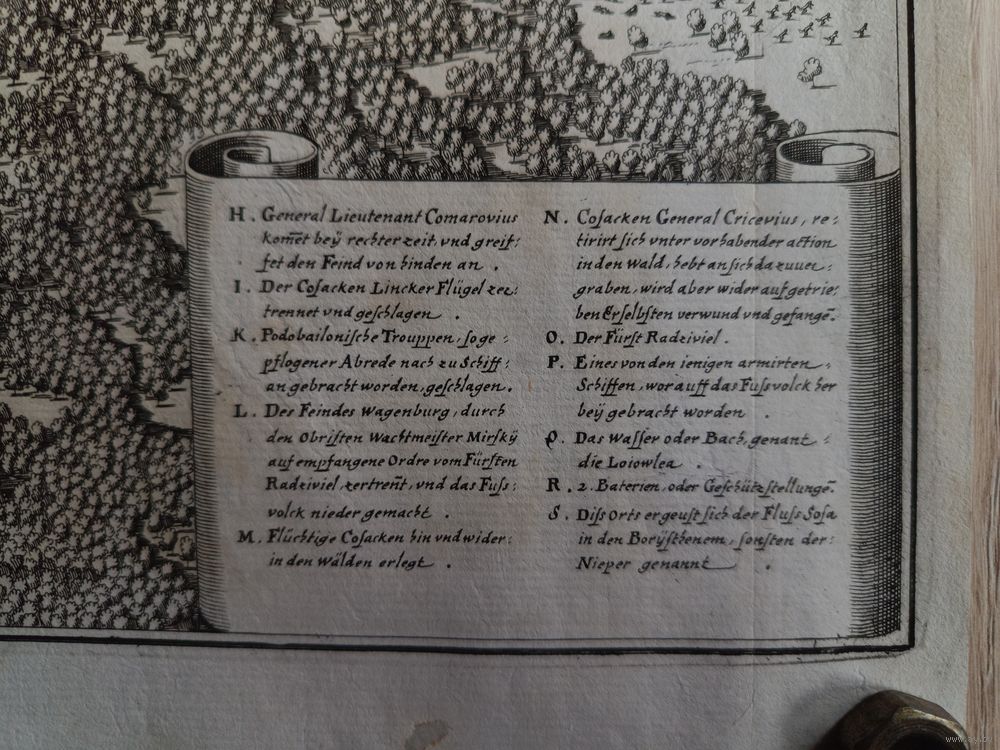 H. General Lieutenant Comarovius
kom̄et beÿ rechter zeit, vnd greif:
fet den Feind von hinden an.
I. Der Coſacken Lincker Flügel zer:
trennet vnd geſchlagen.
K. Podobailoniſche Trouppen, ſoge:
pflogener Abrede nach zu Schiff:
an gebracht worden, geſchlagen.
L. Des Feindes Wagenburg, durch
den Obriſten Wachtmeiſter Mirſkÿ
auf empfangene Ordre vom Fürſten
Radziviel, zertren̄t, vnd das Fuſs:
volck nieder gemacht.
M. Flüchtige Coſacken hin vnd wider:
in den Wälden erlegt.
N. Coſacken General Cricevius, re:
tirirt ſich vnter vorhabender action
in den Wald, hebt an ſich da zuuer:
graben, wird aber wider aufgetrie:
ben Er ſelbſten verwund vnd gefangē.
O. Der Fürſt Radziviel.
P. Eines von den ienigen armirten
Schiffen, worauff das Fuſsvolck her
beÿ gebracht worden.
Q. Das Waſſer oder Bach, genant:
die Loiowlea.
R. 2. Baterien, oder Geſchützſtellungē.
S. Diſs Orts ergeuſt ſich der Fluſs Soſa
in den Borÿſthenem, ſonſten der:
Nieper genannt.